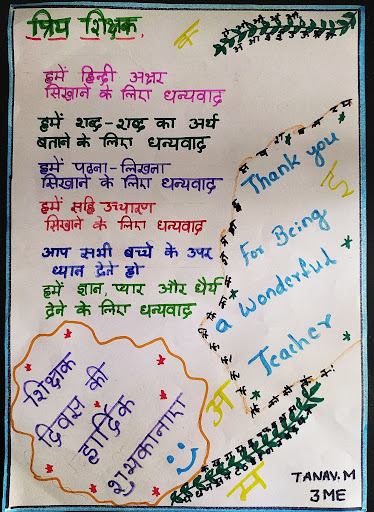 प्रिय शिक्षक
हमें हिन्दी अक्षर
सिखाने के लिए धन्यवाद
हमें शब्द-शब्द का अर्थ
बताने के लिए धन्यवाद
हमें पढ़ना-लिखना
सिखाने के लिए धन्यवाद
हमें सहि उच्चारण
सिखाने के लिए धन्यवाद
आप सभी बच्चे के उपर
ध्यान देते हो
हमें ज्ञान, प्यार और धैर्य
देने के लिए धन्यवाद
Thank you
For Being
a wonderful
Teacher
शिक्षक
दिवस की
हार्दिक
शुभकामना
क
अ
म
TANAV.M
3ME